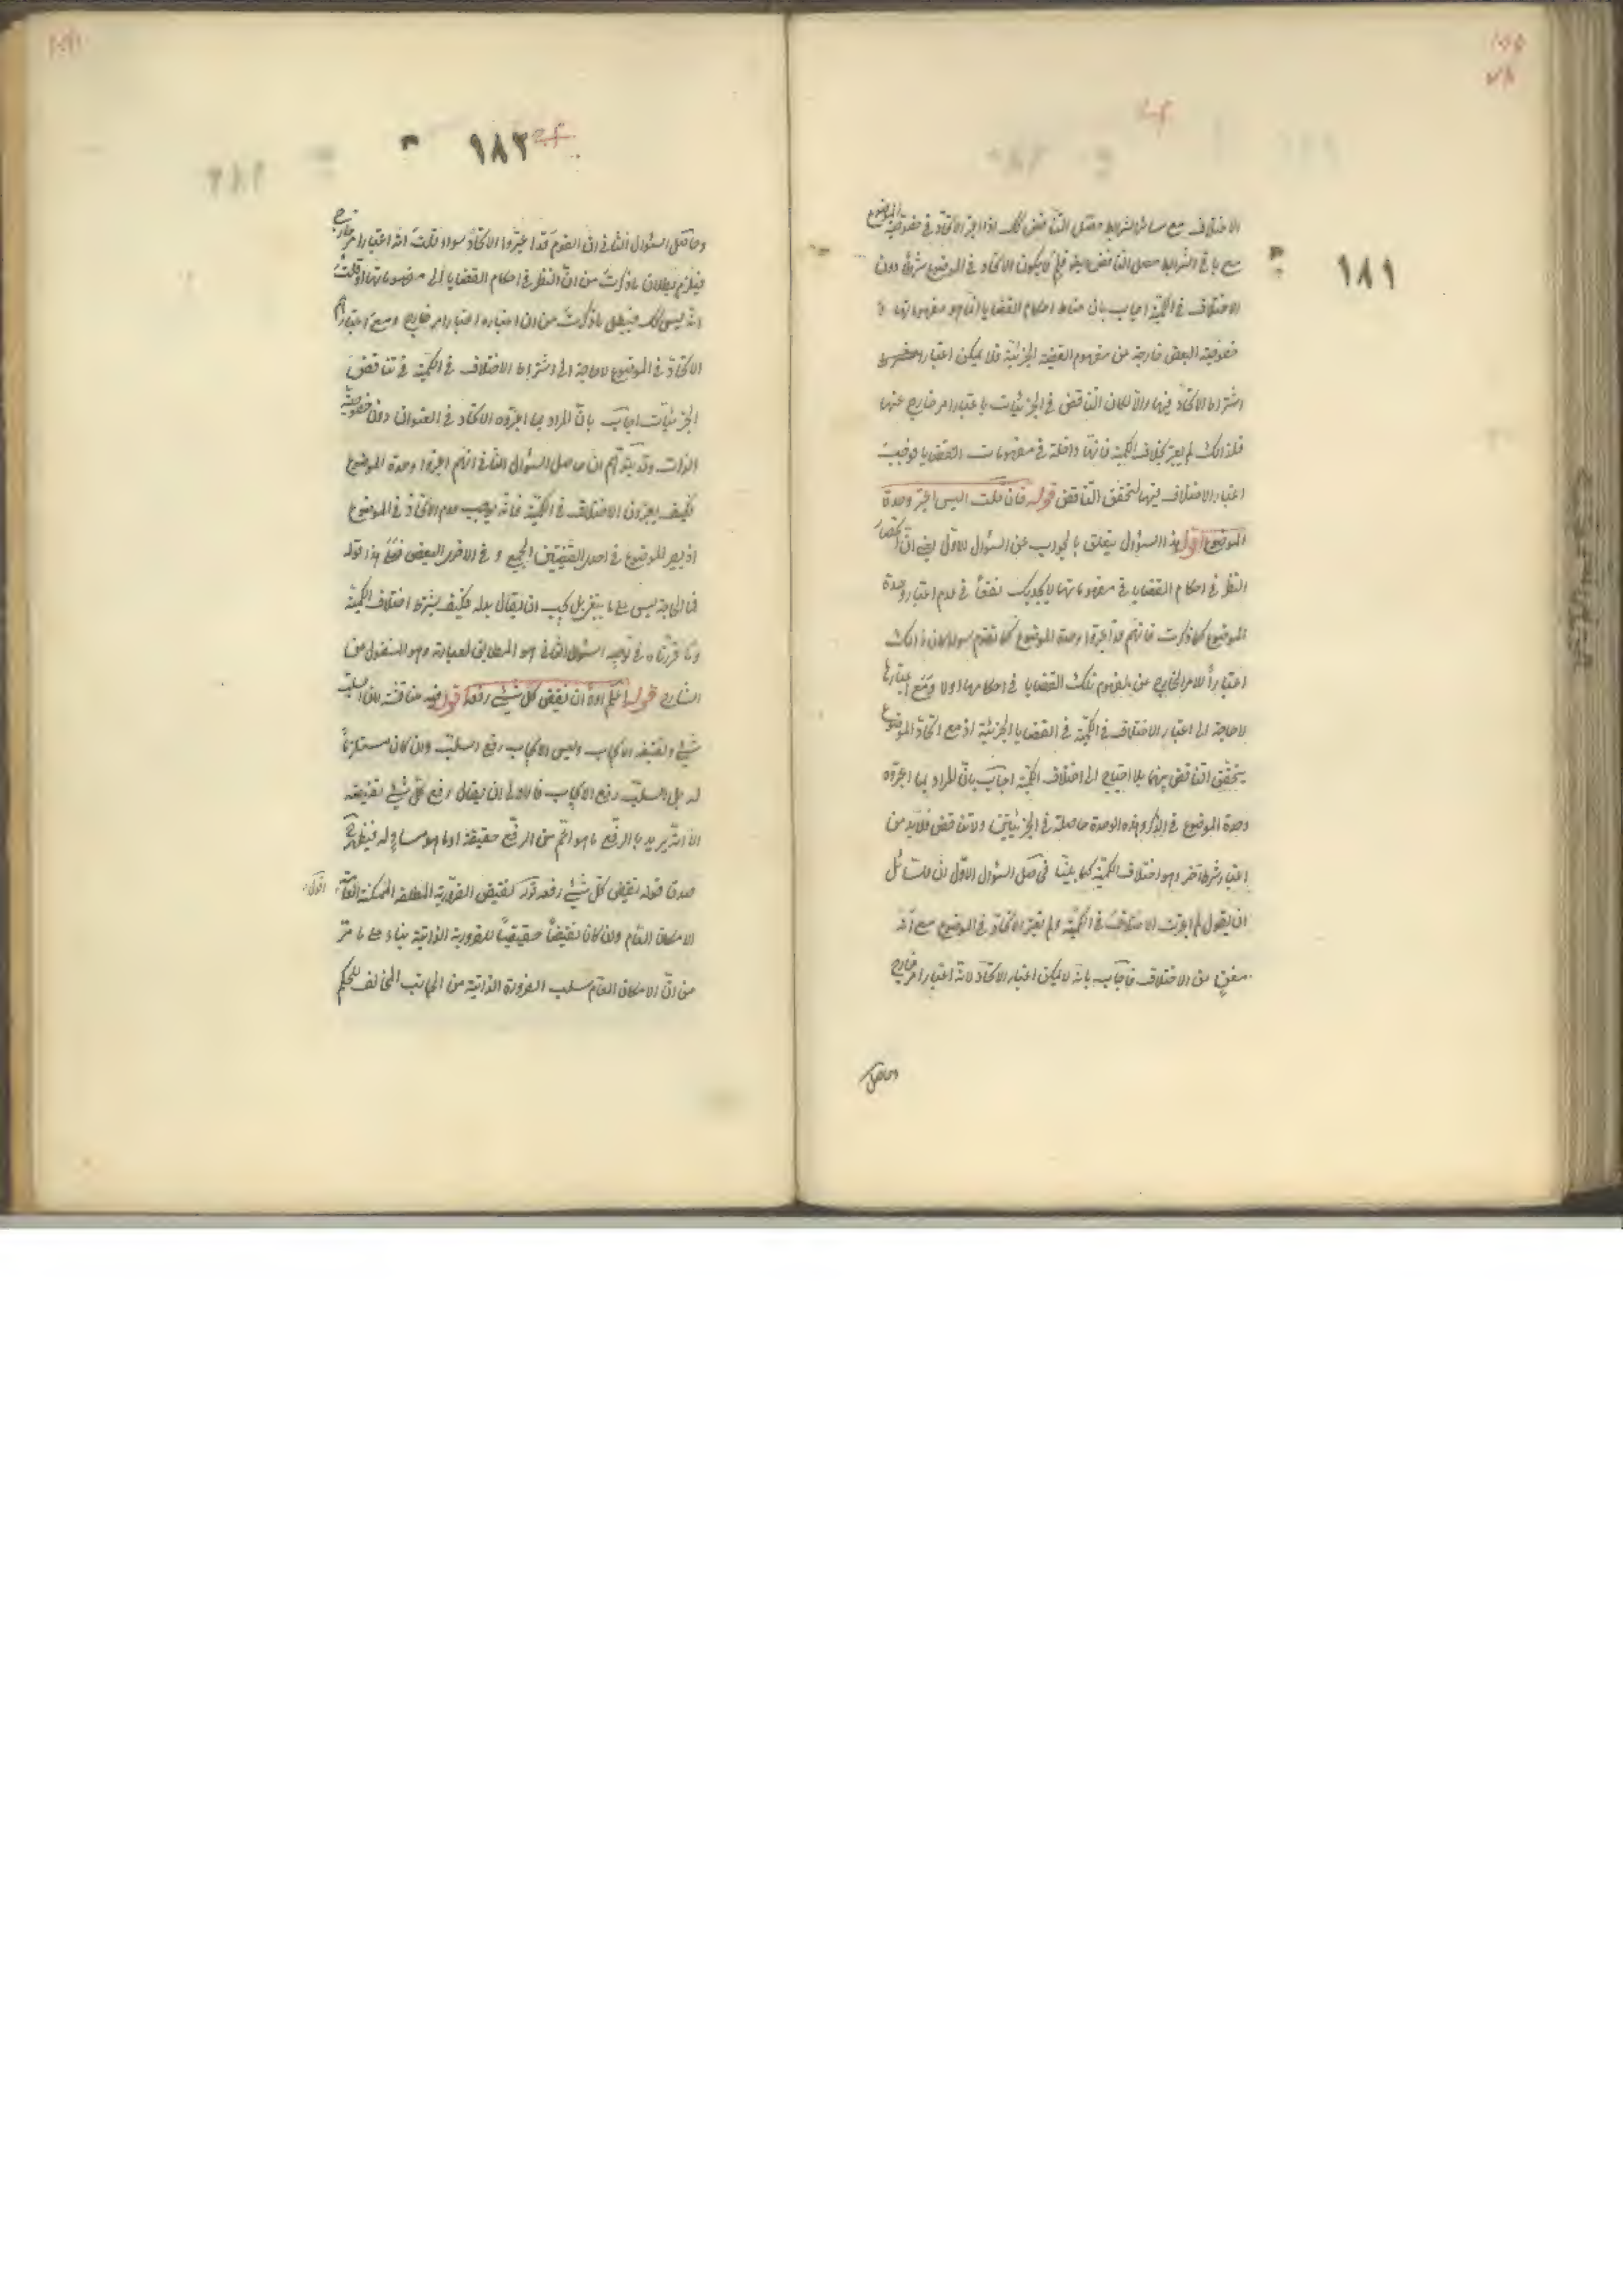 ١٨١
الاختلاف مع سائر الشرايط حصل التناقض كك اذا اعتبر الاتحاد فى خصوصية الموضوع
مع باقى الشرايط حصل التناقض فلم لا يكون الاتحاد فى الموضوع شرطا دون
الاختلاف فى الكمية اجاب بان مناط احكام القضايا انما هو مفهوماتها و
خصوصية البعض خارجة عن مفهوم القضية الجزئية فلا يمكن اعتبار
اشتراط الاتحاد فيها والا لكان التناقض فى الجزئيات باعتبار امر خارج عنها
فلذلك لم يعتبر بخلاف الكمية فانها داخلة فى مفهومات القضايا فوجب
اعتبار الاختلاف فيها لتحقق التناقض قوله فان قلت اليس اعتبر وحدة
الموضوع اقول هذا السؤال يتعلق بالجواب عن السؤال الاول يعنى ان
النظر فى احكام القضايا فى مفهوماتها لا يجديك نفعا فى عدم اعتبار وحدة
الموضوع كما ذكرت فانهم قد اعتبروا وحدة الموضوع كما تقدم سواء كان ذلك
اعتبارا للامر الخارج عن مفهوم تلك القضايا فى احكامها او لا ومع اعتبارها
لا حاجة الى اعتبار الاختلاف فى الكمية فى القضايا الجزئية اذ مع اتحاد الموضوع
يتحقق التناقض بينها بلا احتياج الى اختلاف الكمية اجاب بان المراد بما اعتبروه
وحدة الموضوع فى الذكر وهذه الوحدة حاصلة فى الجزئيتين ولا تناقض فلا بد من
اعتبار شرط آخر وهو اختلاف الكمية كما بينا فحاصل السؤال الاول ان لسائل
ان يقول لم اعتبرت الاختلاف فى الكمية ولم تعتبر الاتحاد فى الموضوع مع انه
مغن عن الاختلاف فاجاب بانه لا يمكن اعتبار الاتحاد لانه اعتبار امر خارج
وحاصل
١٨٢
وحاصل السؤال الثانى ان القوم قد اعتبروا الاتحاد سواء قلت انه اعتبار امر خارج
فيلزم بطلان ما ذكرت من ان النظر فى احكام القضايا الى مفهوماتها او قلت
انه ليس كك فيبطل ما ذكرت من ان اعتباره اعتبار امر خارج ومع اعتبارهم
الاتحاد فى الموضوع لا حاجة الى اشتراط الاختلاف فى الكمية فى تناقض
الجزئيات اجاب بان المراد بما اعتبروه الاتحاد فى العنوان دون خصوصية
الذات وقد يتوهم ان حاصل السؤال الثانى انهم اعتبروا وحدة الموضوع
فكيف يعتبرون الاختلاف فى الكمية فانه يوجب عدم الاتحاد فى الموضوع
اذ يصير الموضوع فى احدى القضيتين الجميع وفى الاخرى البعض فعلى هذا قوله
فما الحاجة ليس على ما ينبغى بل يجب ان يقال بدله فكيف يشترط اختلاف الكمية
وما قررناه فى توجيه السؤال الثانى هو المطابق لعبارته وهو المنقول من
الشارح قوله اعلم اولا ان نقيض كل شئ رفعه اقول فيه مناقشة لان السلب
شئ ونقيضه الايجاب وليس الايجاب رفع السلب وان كان مستلزما
له بل السلب رفع الايجاب فالاولى ان يقال رفع كل شئ نقيضه
الا انه يريد بالرفع ما هو اعم من الرفع حقيقة او ما هو مساو له فيظهر ح
صدق قوله نقيض كل شئ رفعه قوله فنقيض الضرورية المطلقة الممكنة العامة اقول
الامكان العام وان كان نقيضا حقيقيا للضرورية الذاتية بناء على ما مر
من ان الامكان العام سلب الضرورة الذاتية من الجانب المخالف للحكم